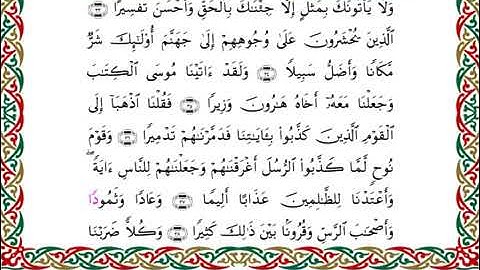 وَلَا يَأْتُونَكَ بِمَثَلٍ إِلَّا جِئْنَٰكَ بِٱلْحَقِّ وَأَحْسَنَ تَفْسِيرًا ٣٣
ٱلَّذِينَ يُحْشَرُونَ عَلَىٰ وُجُوهِهِمْ إِلَىٰ جَهَنَّمَ أُو۟لَٰٓئِكَ شَرٌّ
مَّكَانًا وَأَضَلُّ سَبِيلًا ٣٤ وَلَقَدْ ءَاتَيْنَا مُوسَى ٱلْكِتَٰبَ
وَجَعَلْنَا مَعَهُۥٓ أَخَاهُ هَٰرُونَ وَزِيرًا ٣٥ فَقُلْنَا ٱذْهَبَآ إِلَى
ٱلْقَوْمِ ٱلَّذِينَ كَذَّبُوا۟ بِـَٔايَٰتِنَا فَدَمَّرْنَٰهُمْ تَدْمِيرًا ٣٦ وَقَوْمَ
نُوحٍ لَّمَّا كَذَّبُوا۟ ٱلرُّسُلَ أَغْرَقْنَٰهُمْ وَجَعَلْنَٰهُمْ لِلنَّاسِ ءَايَةً ۖ
وَأَعْتَدْنَا لِلظَّٰلِمِينَ عَذَابًا أَلِيمًا ٣٧ وَعَادًا وَثَمُودَا۟
وَأَصْحَٰبَ ٱلرَّسِّ وَقُرُونًۢا بَيْنَ ذَٰلِكَ كَثِيرًا ٣٨ وَكُلًّا ضَرَبْنَا